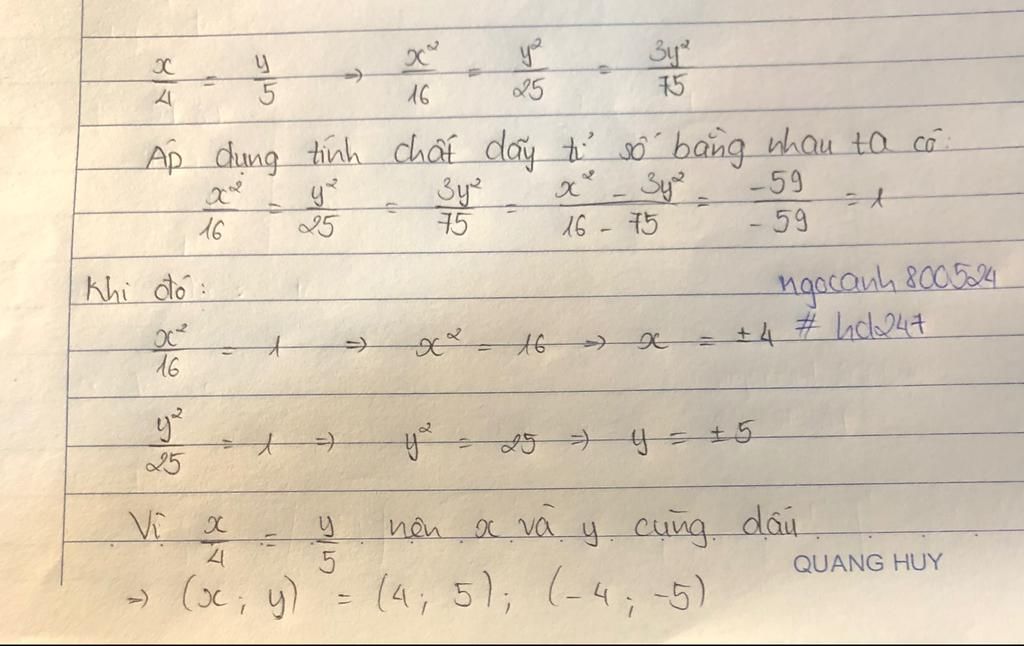 x/4 = y/5 ⇒ x²/16 = y²/25 = 3y²/75
Áp dụng tính chất dãy tỉ số bằng nhau ta có:
x²/16 = y²/25 = 3y²/75 = (x² - 3y²)/(16 - 75) = -59/-59 = 1
Khi đó:
ngocanh800524
x²/16 = 1 ⇒ x² = 16 ⇒ x = ±4
# hd247
y²/25 = 1 ⇒ y² = 25 ⇒ y = ±5
Vì x/4 = y/5 nên x và y cùng dấu
QUANG HUY
⇒ (x; y) = (4; 5); (-4; -5)